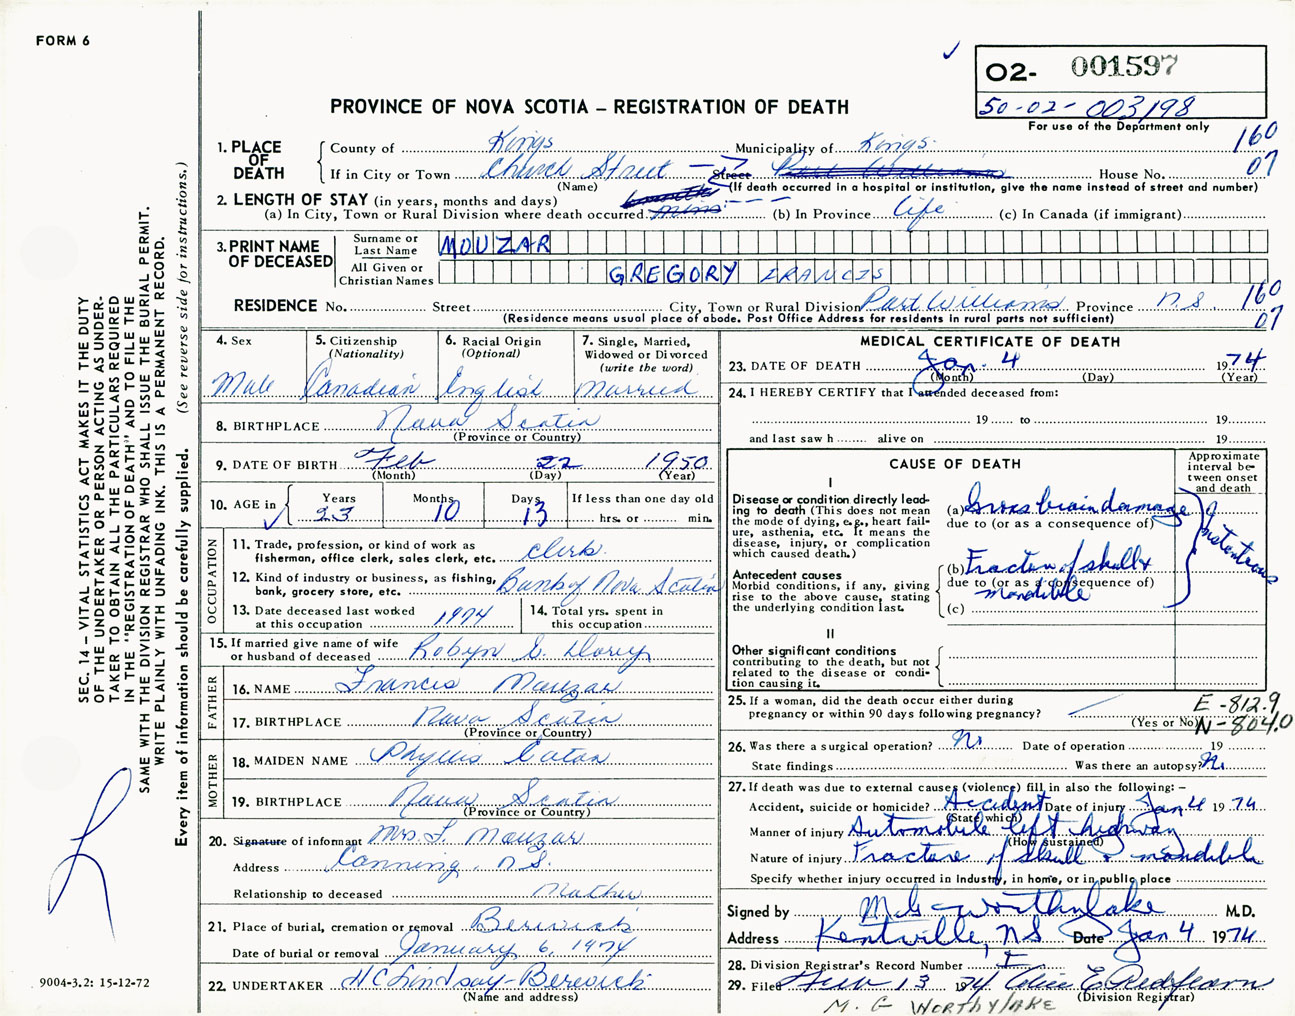 FORM 6
O2- 001597
50-02-003198
For use of the Department only
PROVINCE OF NOVA SCOTIA – REGISTRATION OF DEATH
160
07
1. PLACE OF DEATH
County of Kings Municipality of Kings
If in City or Town Church Street Street Port Williams House No.
(Name) (If death occurred in a hospital or institution, give the name instead of street and number)
2. LENGTH OF STAY (in years, months and days)
(a) In City, Town or Rural Division where death occurred mins (b) In Province life (c) In Canada (if immigrant)
3. PRINT NAME OF DECEASED
Surname or Last Name MOUZAR
All Given or Christian Names GREGORY FRANCIS
RESIDENCE No. Street City, Town or Rural Division Port Williams Province N.S. 160
(Residence means usual place of abode. Post Office Address for residents in rural parts not sufficient) 07
4. Sex Male
5. Citizenship (Nationality) Canadian
6. Racial Origin (Optional) English
7. Single, Married, Widowed or Divorced (write the word) Married
8. BIRTHPLACE Nova Scotia
(Province or Country)
9. DATE OF BIRTH Feb 22 1950
(Month) (Day) (Year)
10. AGE in Years 23 Months 10 Days 13 If less than one day old hrs. or min.
OCCUPATION
11. Trade, profession, or kind of work as fisherman, office clerk, sales clerk, etc. clerk.
12. Kind of industry or business, as fishing, bank, grocery store, etc. Bank of Nova Scotia
13. Date deceased last worked at this occupation 1974
14. Total yrs. spent in this occupation
15. If married give name of wife or husband of deceased Robyn E.
FATHER
16. NAME Francis Mouzar
17. BIRTHPLACE Nova Scotia
(Province or Country)
MOTHER
18. MAIDEN NAME Phyllis Eaton
19. BIRTHPLACE Nova Scotia
(Province or Country)
20. Signature of informant Mrs. F. Mouzar
Address Canning, N.S.
Relationship to deceased Mother
21. Place of burial, cremation or removal Berwick
Date of burial or removal January 6, 1974
22. UNDERTAKER H C Lindsay - Berwick
(Name and address)
MEDICAL CERTIFICATE OF DEATH
23. DATE OF DEATH Jan. 4 1974
(Month) (Day) (Year)
24. I HEREBY CERTIFY that I attended deceased from:
19 to 19
and last saw h alive on 19
CAUSE OF DEATH
Approximate interval between onset and death
I
Disease or condition directly leading to death (This does not mean the mode of dying, e.g., heart failure, asthenia, etc. It means the disease, injury, or complication which caused death.)
(a) Gross brain damage
due to (or as a consequence of)
Antecedent causes
Morbid conditions, if any, giving rise to the above cause, stating the underlying condition last.
(b) Fracture of skull &
due to (or as a consequence of)
mandible
(c)
II
Other significant conditions contributing to the death, but not related to the disease or condition causing it.
25. If a woman, did the death occur either during pregnancy or within 90 days following pregnancy?
(Yes or No)
E-812.9
N-804.0
26. Was there a surgical operation? No Date of operation 19
State findings Was there an autopsy? No
27. If death was due to external causes (violence) fill in also the following: –
Accident, suicide or homicide? Accident Date of injury Jan 4 1974
(State which)
Manner of injury Automobile left highway
(How sustained)
Nature of injury Fracture of skull & mandible
Specify whether injury occurred in Industry, in home, or in public place
Signed by M G Worthylake M.D.
Address Kentville, NS Date Jan 4 1974
28. Division Registrar's Record Number
29. Filed Feb 13 1974 Alice E. Redfearn
(Division Registrar)
M. G WORTHYLAKE
SEC. 14 – VITAL STATISTICS ACT MAKES IT THE DUTY
OF THE UNDERTAKER OR PERSON ACTING AS UNDER-
TAKER TO OBTAIN ALL THE PARTICULARS REQUIRED
IN THE "REGISTRATION OF DEATH" AND TO FILE THE
SAME WITH THE DIVISION REGISTRAR WHO SHALL ISSUE THE BURIAL PERMIT.
WRITE PLAINLY WITH UNFADING INK. THIS IS A PERMANENT RECORD.
Every item of information should be carefully supplied. (See reverse side for instructions.)
9004-3.2: 15-12-72